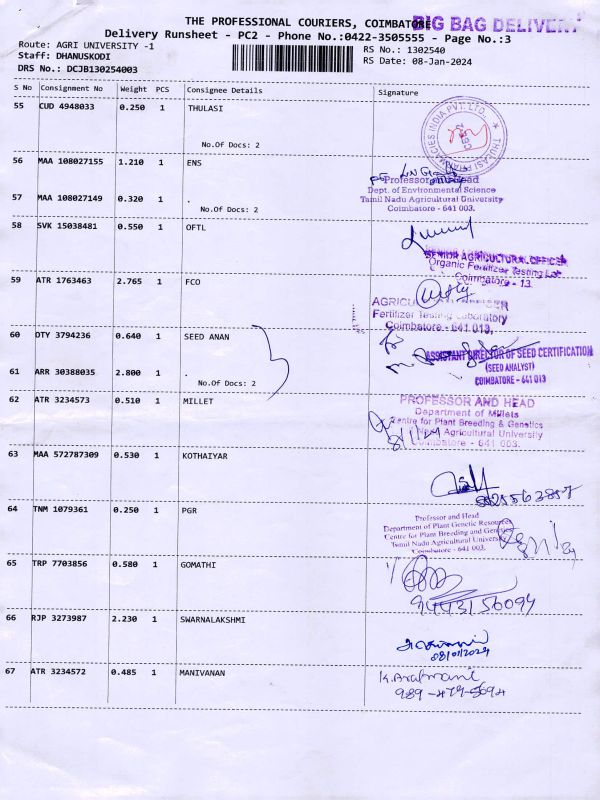 THE PROFESSIONAL COURIERS, COIMBATORE BIG BAG DELIVERY
Delivery Runsheet - PC2 - Phone No.:0422-3505555 - Page No.:3
Route: AGRI UNIVERSITY -1
RS No.: 1302540
Staff: DHANUSKODI
RS Date: 08-Jan-2024
DRS No.: DCJB130254003
S No Consignment No Weight PCS Consignee Details Signature
55 CUD 4948033 0.250 1 THULASI
THULASI PHARMACIES INDIA PVT. LTD.
No.Of Docs: 2
56 MAA 108027155 1.210 1 ENS
Professor and Head
Dept. of Environmental Science
57 MAA 108027149 0.320 1 .
Tamil Nadu Agricultural University
No.Of Docs: 2
Coimbatore - 641 003.
58 SVK 15038481 0.550 1 OFTL
SENIOR AGRICULTURAL OFFICER
Organic Fertilizer Testing Lab
Coimbatore - 13.
59 ATR 1763463 2.765 1 FCO
AGRICULTURAL OFFICER
Fertilizer Testing Laboratory
Coimbatore - 641 013,
60 OTY 3794236 0.640 1 SEED ANAN
ASSISTANT DIRECTOR OF SEED CERTIFICATION
(SEED ANALYST)
61 ARR 30388035 2.800 1 .
COIMBATORE - 641 013
No.Of Docs: 2
62 ATR 3234573 0.510 1 MILLET
PROFESSOR AND HEAD
Department of Millets
Centre for Plant Breeding & Genetics
Tamil Nadu Agricultural University
Coimbatore - 641 003.
8/1/24
63 MAA 572787309 0.530 1 KOTHAIYAR
64 TNM 1079361 0.250 1 PGR
Professor and Head
Department of Plant Genetic Resources
Centre for Plant Breeding and Genetics
Tamil Nadu Agricultural University
Coimbatore - 641 003.
8/1/24
65 TRP 7703856 0.580 1 GOMATHI
9443156094
66 RJP 3273987 2.230 1 SWARNALAKSHMI
08/01/2024
67 ATR 3234572 0.485 1 MANIVANAN
989-479-5694